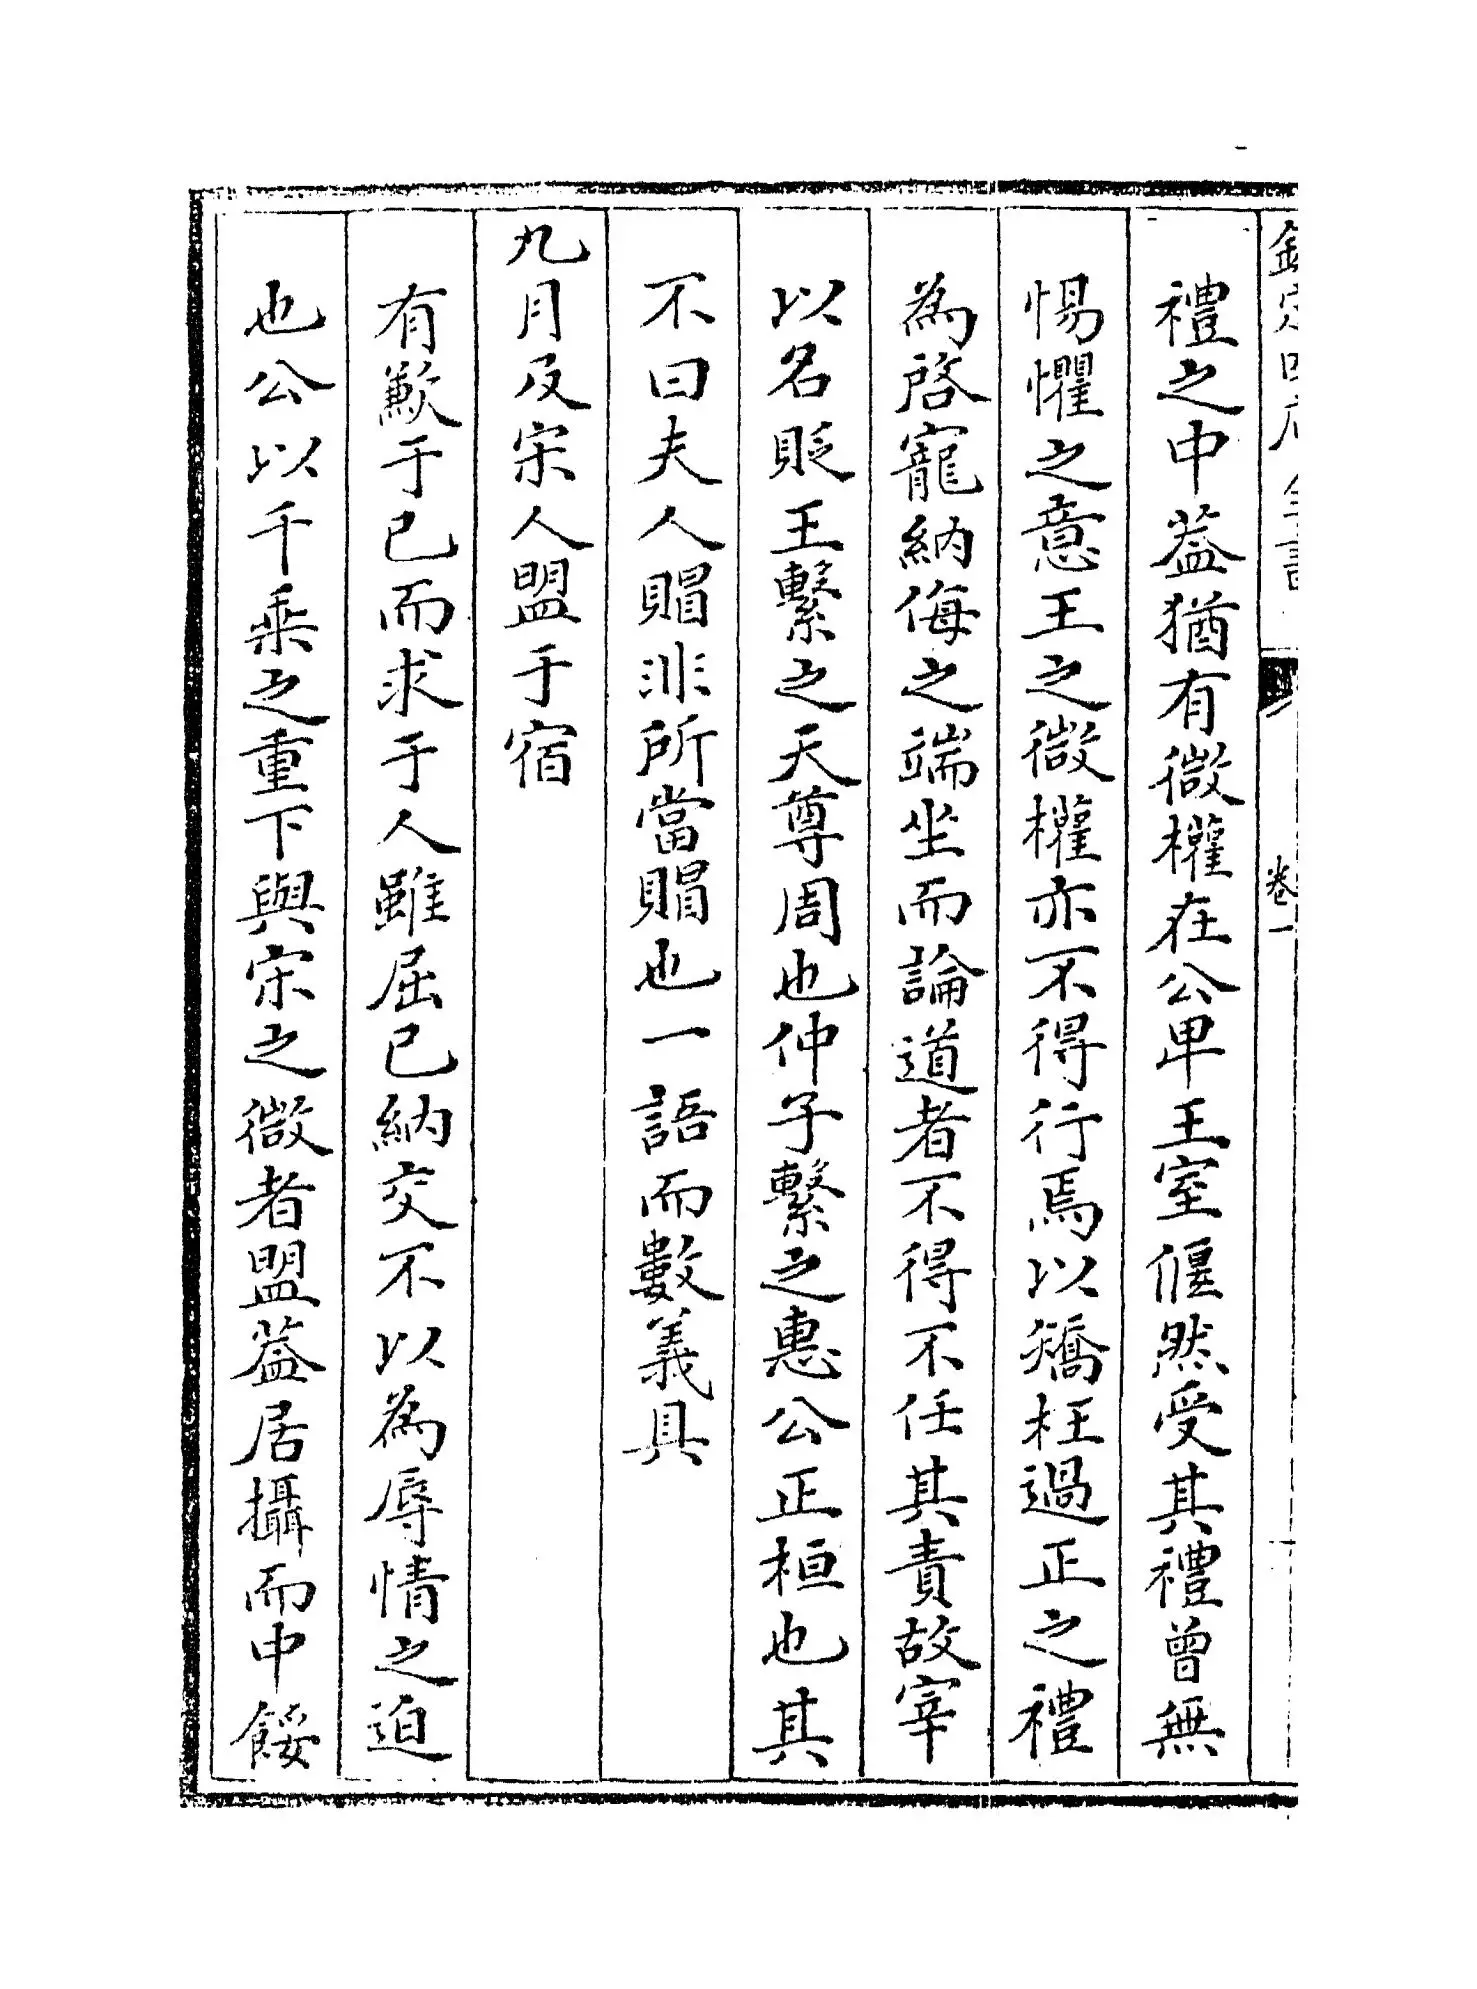 欽定四庫全書
卷一
禮之中葢猶有微權在公卑王室偃然受其禮曾無
惕懼之意王之微權亦不得行焉以矯枉過正之禮
為啓寵納侮之端坐而論道者不得不任其責故宰
以名貶王繫之天尊周也仲子繫之惠公正桓也其
不曰夫人賵非所當賵也一語而數義具
九月及宋人盟于宿
有歉于已而求于人雖屈已納交不以為辱情之迫
也公以千乘之重下與宋之微者盟葢居攝而中餒